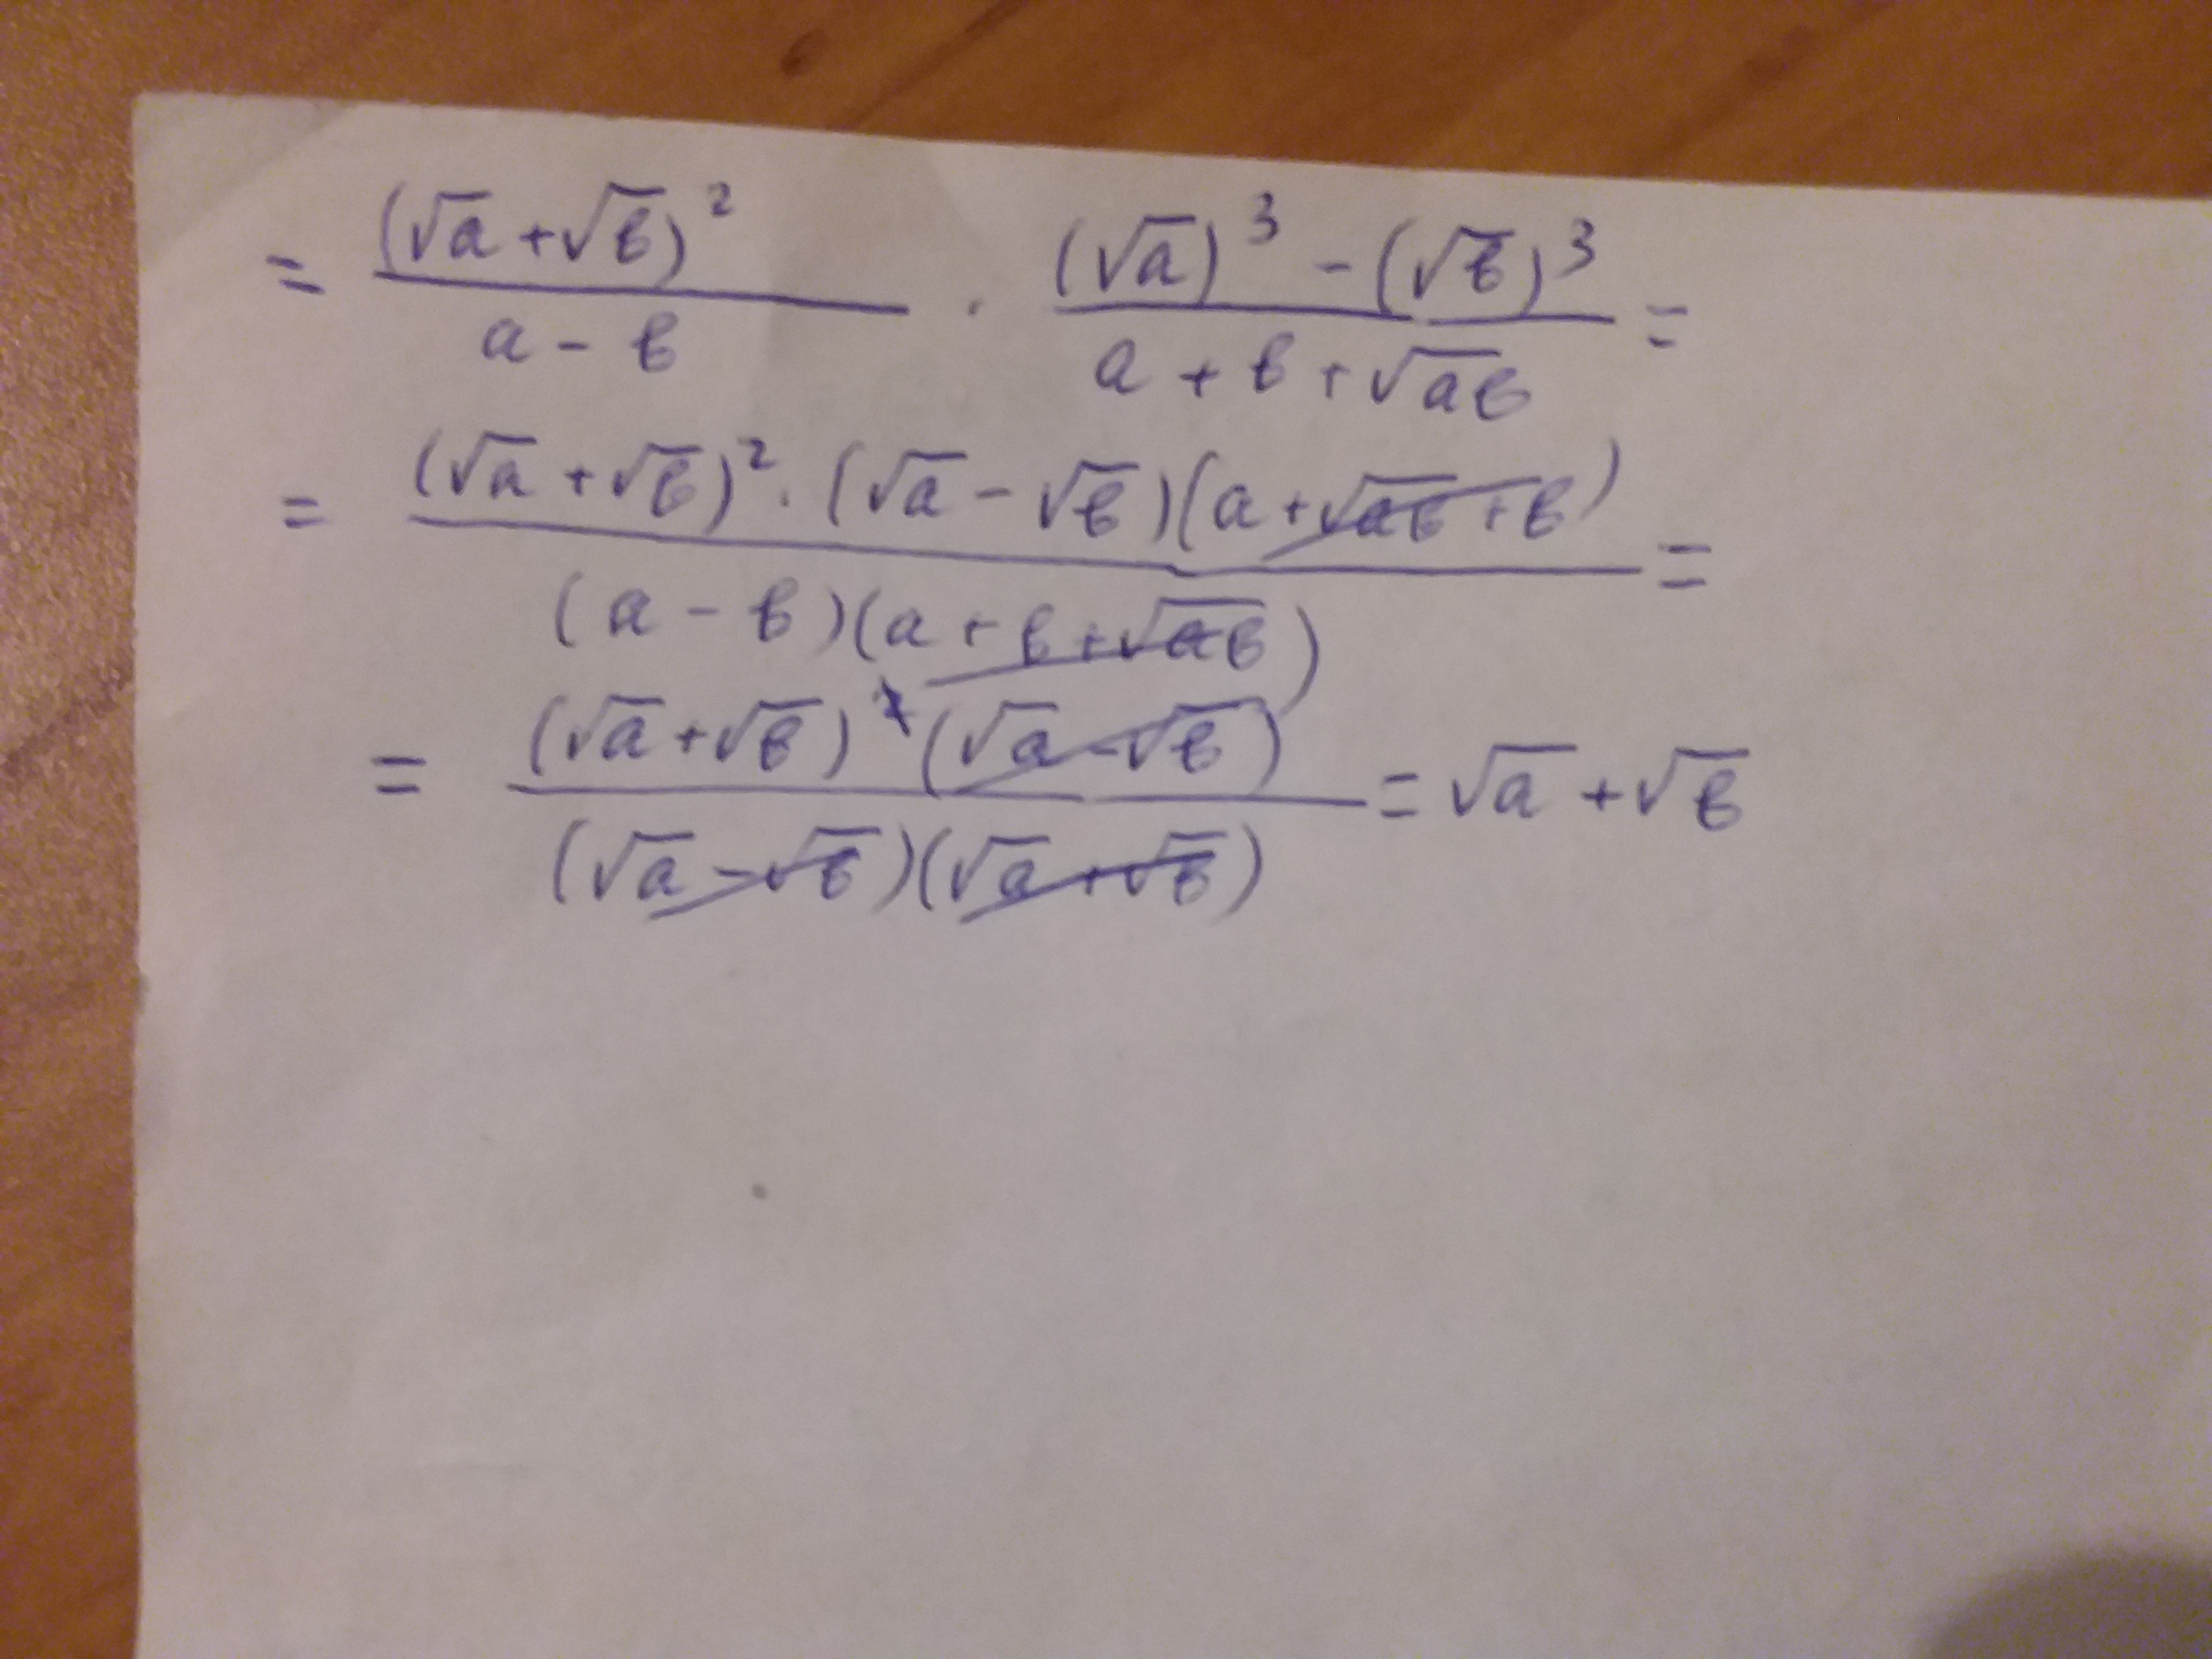 = (√a + √b)² / (a - b) · ((√a)³ - (√b)³) / (a + b + √ab) =
= (√a + √b)² · (√a - √b)(a + √ab + b) / (a - b)(a + b + √ab) =
= (√a + √b)² (√a - √b) / (√a - √b)(√a + √b) = √a + √b